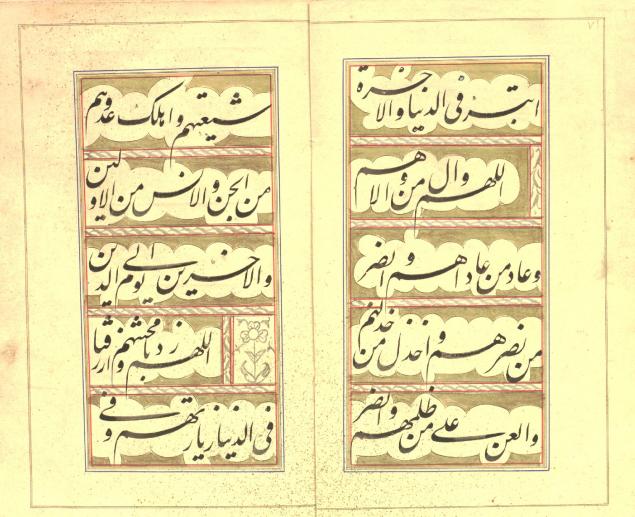 ٧١
ابتر فی الدنیا والاخرة
اللهم وال من والاهم
وعاد من عاداهم وانصر
من نصرهم واخذل من خذلهم
والعن علی من ظلمهم وانصر
شیعتهم واهلک عدوهم
من الجن والانس من الاولین
والاخرین الی یوم الدین
اللهم زدنا محبتهم وارزقنا
فی الدنیا زیارتهم وفی